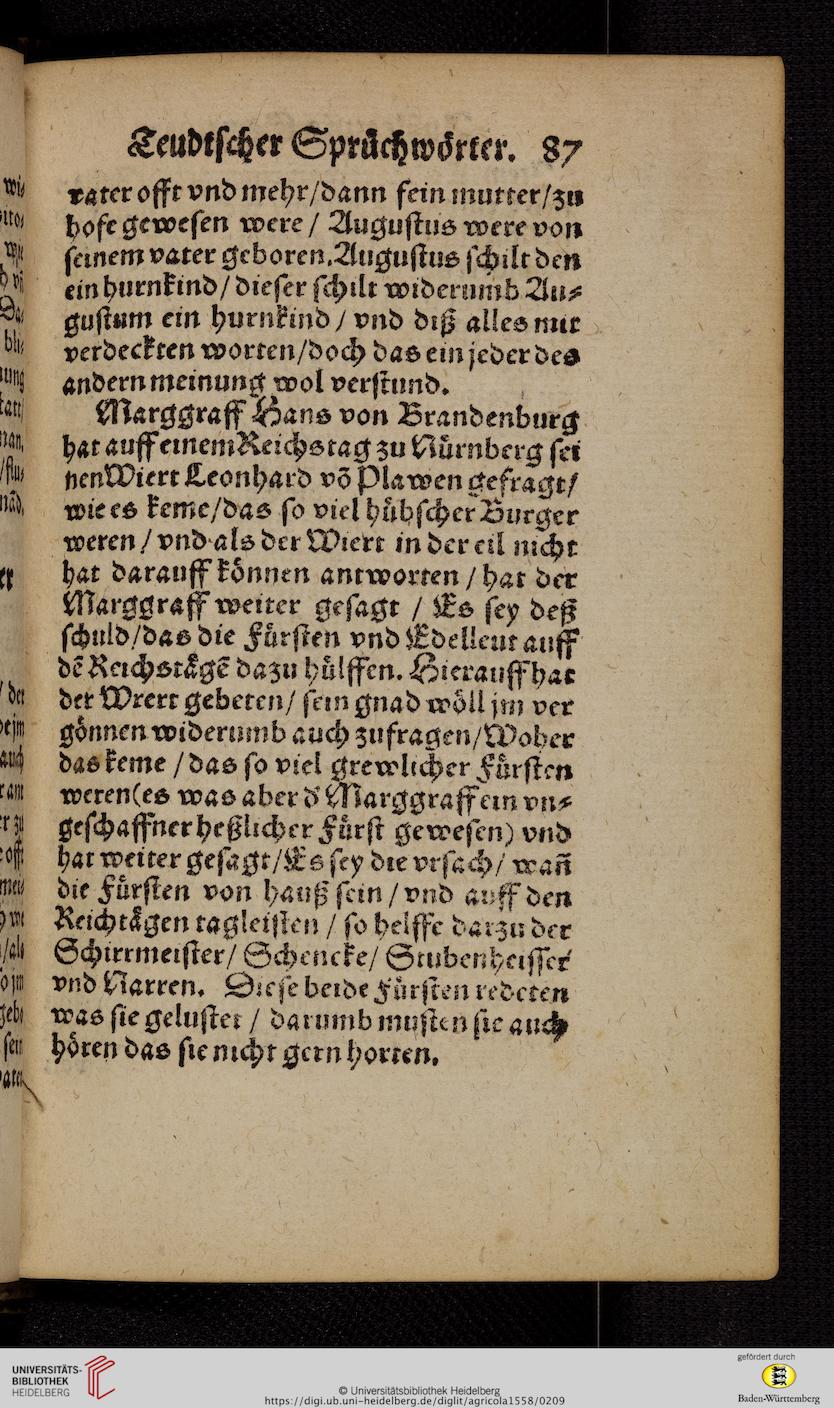 Teudtscher Sprüchwörter. 87
vater offt vnd mehr/dann sein mutter/zu
hofe gewesen were / Augustus were von
seinem vater geboren. Augustus schilt den
ein hurnkind/ dieser schilt widerumb Au⸗
gustum ein hurnkind / vnd diß alles mit
verdeckten worten/doch das ein jeder des
andern meinung wol verstund.
Marggraff Hans von Brandenburg
hat auff einem Reichstag zu Nürnberg sei
nen Wiert Leonhard võ Plawen gefragt/
wie es keme/das so viel hübscher Burger
weren / vnd als der Wiert in der eil nicht
hat darauff können antworten / hat der
Marggraff weiter gesagt / Es sey deß
schuld/das die Fürsten vnd Edelleut auff
dẽ Reichstägẽ dazu hülffen. Hierauff hat
der Wrert gebeten/ sein gnad wöll jm ver
gönnen widerumb auch zufragen/Woher
das keme / das so viel grewlicher Fürsten
weren(es was aber d' Marggraff ein vn⸗
geschaffner heßlicher Fürst gewesen) vnd
hat weiter gesagt/Es sey die vrsach/ wañ
die Fürsten von hauß sein / vnd auff den
Reichtägen tagleisten / so helffe darzu der
Schirrmeister/ Schencke/ Stubenheisser
vnd Narren. Diese beide Fürsten redeten
was sie gelustet / darumb musten sie auch
hören das sie nicht gern horten.
UNIVERSITÄTS-
BIBLIOTHEK
HEIDELBERG
© Universitätsbibliothek Heidelberg
https://digi.ub.uni-heidelberg.de/diglit/agricola1558/0209
gefördert durch
Baden-Württemberg